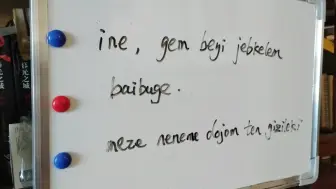 ine, gem begi jebkelem
baibuge.
meze neneme dojom ten gisileki